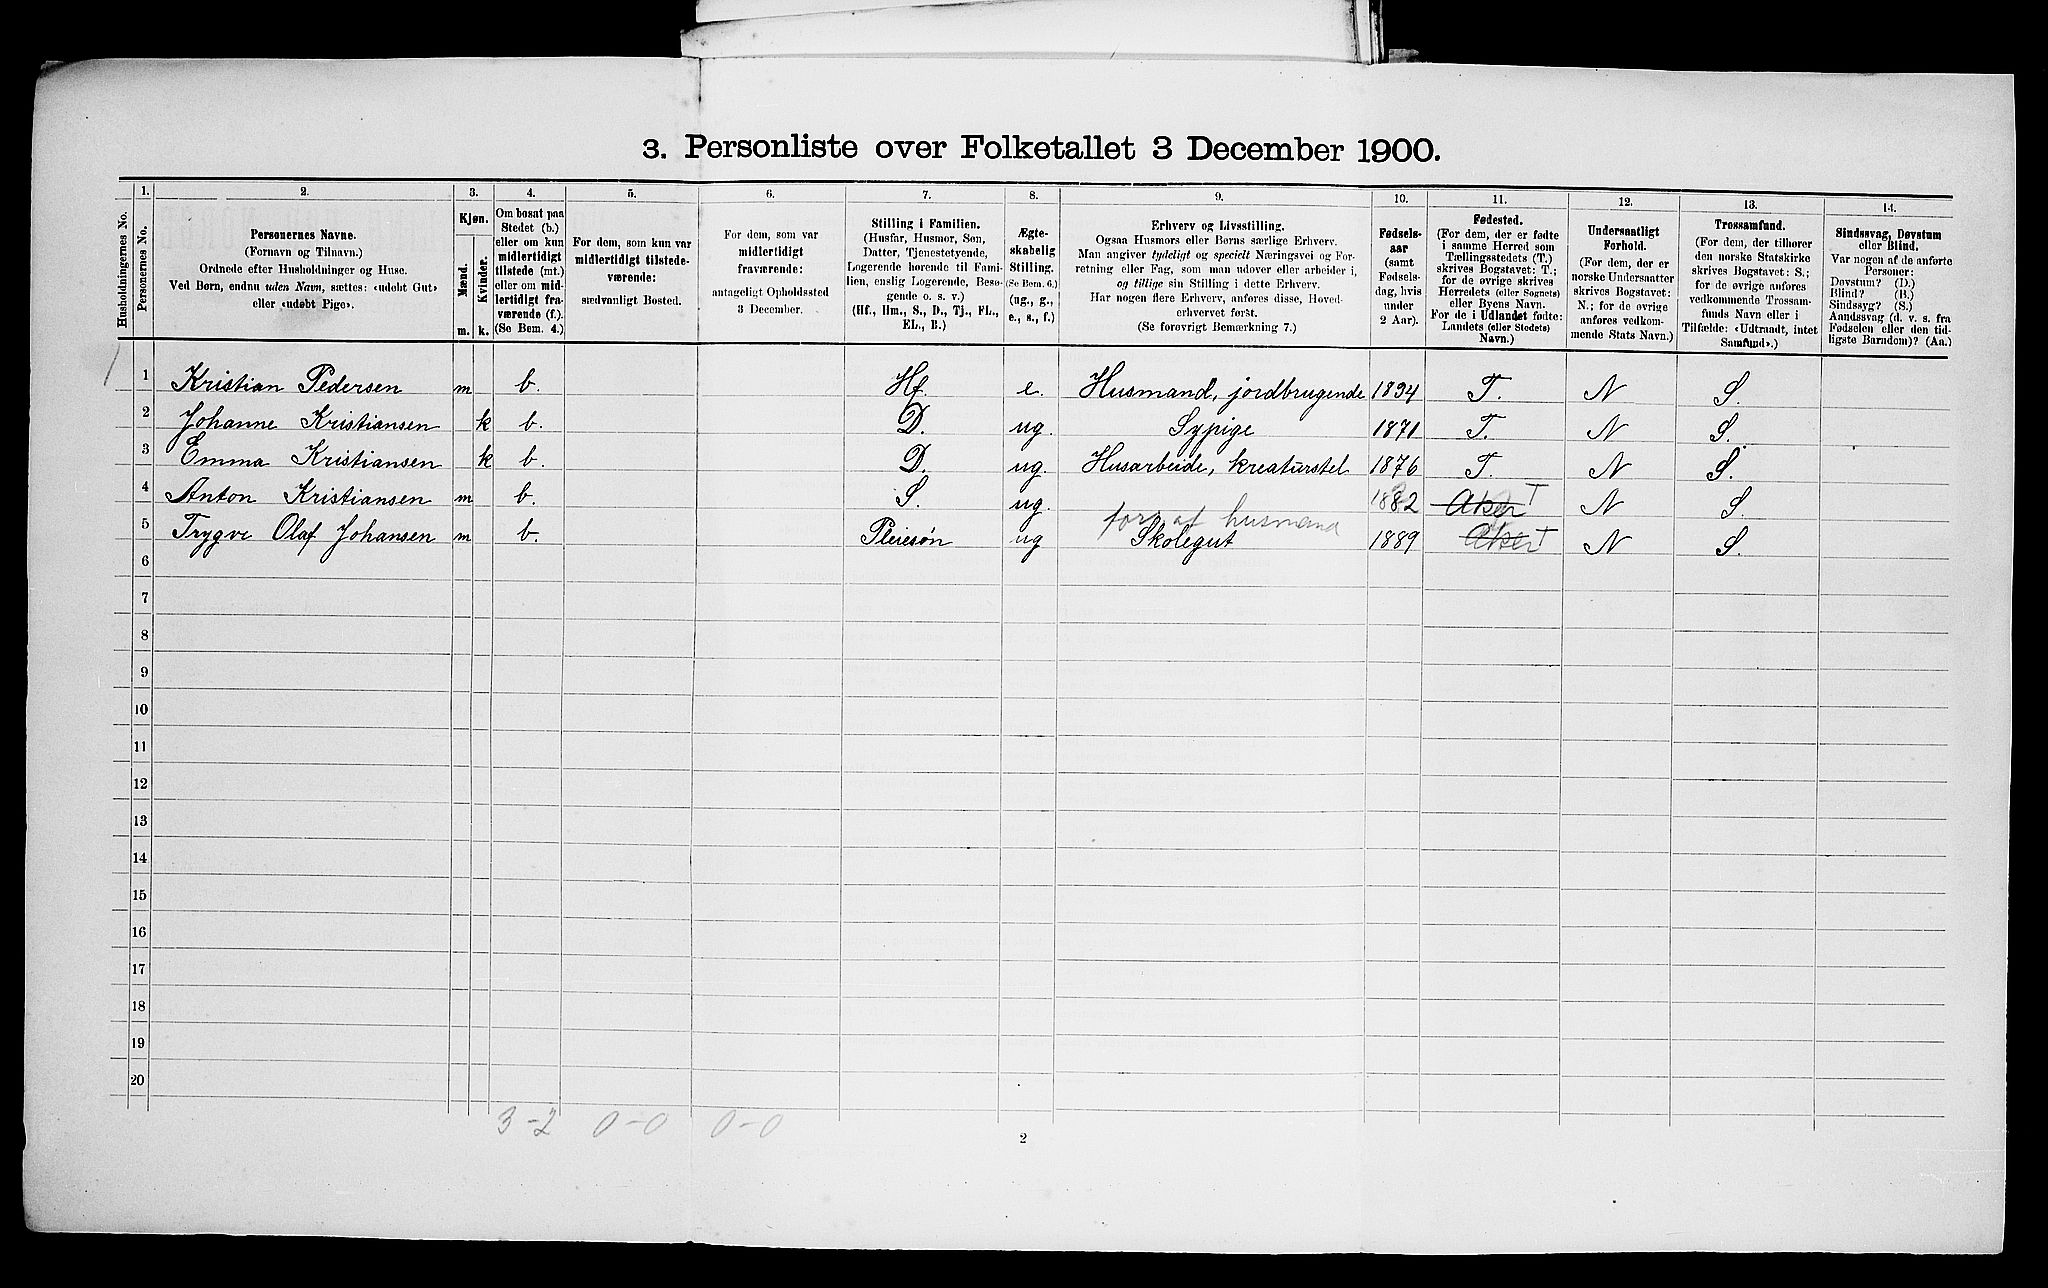 3. Personliste over Folketallet 3 December 1900.
Husholdningernes No.
1.
Personernes No.
2.
Personernes Navne.
(Fornavn og Tilnavn.)
Ordnede efter Husholdninger og Huse.
Ved Børn, endnu uden Navn, sættes: «udøbt Gut»
eller «udøbt Pige».
3.
Kjøn.
Mænd.
Kvinder.
m.
k.
4.
Om bosat paa
Stedet (b.)
eller om kun
midlertidigt
tilstede (mt.)
eller om mid-
lertidigt fra-
værende (f.).
(Se Bem. 4.)
5.
For dem, som kun var
midlertidigt tilstede-
værende:
sædvanligt Bosted.
6.
For dem, som var
midlertidigt
fraværende:
antageligt Opholdssted
3 December.
7.
Stilling i Familien.
(Husfar, Husmor, Søn,
Datter, Tjenestetyende,
Logerende hørende til Fami-
lien, enslig Logerende, Besø-
gende o. s. v.)
(Hf., Hm., S., D., Tj., FL.,
EL., B.)
8.
Ægte-
skabelig
Stilling.
(Se Bem. 6.)
(ug., g.,
e., s., f.)
9.
Erhverv og Livsstilling.
Ogsaa Husmors eller Børns særlige Erhverv.
Man angiver tydeligt og specielt Næringsvei og For-
retning eller Fag, som man udover eller arbeider i,
og tillige sin Stilling i dette Erhverv.
Har nogen flere Erhverv, anføres disse, Hoved-
erhvervet først.
(Se forøvrigt Bemærkning 7.)
10.
Fødsels-
aar
(samt
Fødsels-
dag, hvis
under
2 Aar).
11.
Fødested.
(For dem, der er fødte
i samme Herred som
Tællingsstedets (T.)
skrives Bogstavet: T.;
for de øvrige skrives
Herredets (eller Sognets)
eller Byens Navn.
For de i Udlandet fødte:
Landets (eller Stedets)
Navn.)
12.
Undersaatligt
Forhold.
(For dem, der er
norske Undersaatter
skrives Bogstavet:
N.; for de øvrige
anføres vedkom-
mende Stats Navn.)
13.
Trossamfund.
(For dem, der tilhører
den norske Statskirke
skrives Bogstavet: S.;
for de øvrige anføres
vedkommende Trossam-
funds Navn eller i
Tilfælde: «Udtraadt, intet
Samfund».)
14.
Sindssvag, Døvstum
eller Blind.
Var nogen af de anførte
Personer:
Døvstum? (D.)
Blind? (B.)
Sindssyg? (S.)
Aandssvag (d. v. s. fra
Fødselen eller den tid-
ligste Barndom)? (Aa.)
1 1 Kristian Pedersen m b. Hf. e. Husmand, jordbrugende 1834 T. N S.
2 Johanne Kristiansen k b. D. ug. Sypige 1871 T. N S.
3 Emma Kristiansen k b. D. ug. Husarbeide, kreaturstel 1876 T. N S.
4 Anton Kristiansen m b. S. ug. 1882 Aker T N S
5 Trygve Olaf Johansen m b. Pleiesøn ug fors. af husmand Skolegut 1889 Aker T N S.
6
7
8
9
10
11
12
13
14
15
16
17
18
19
20
3-2 0-0 0-0
2